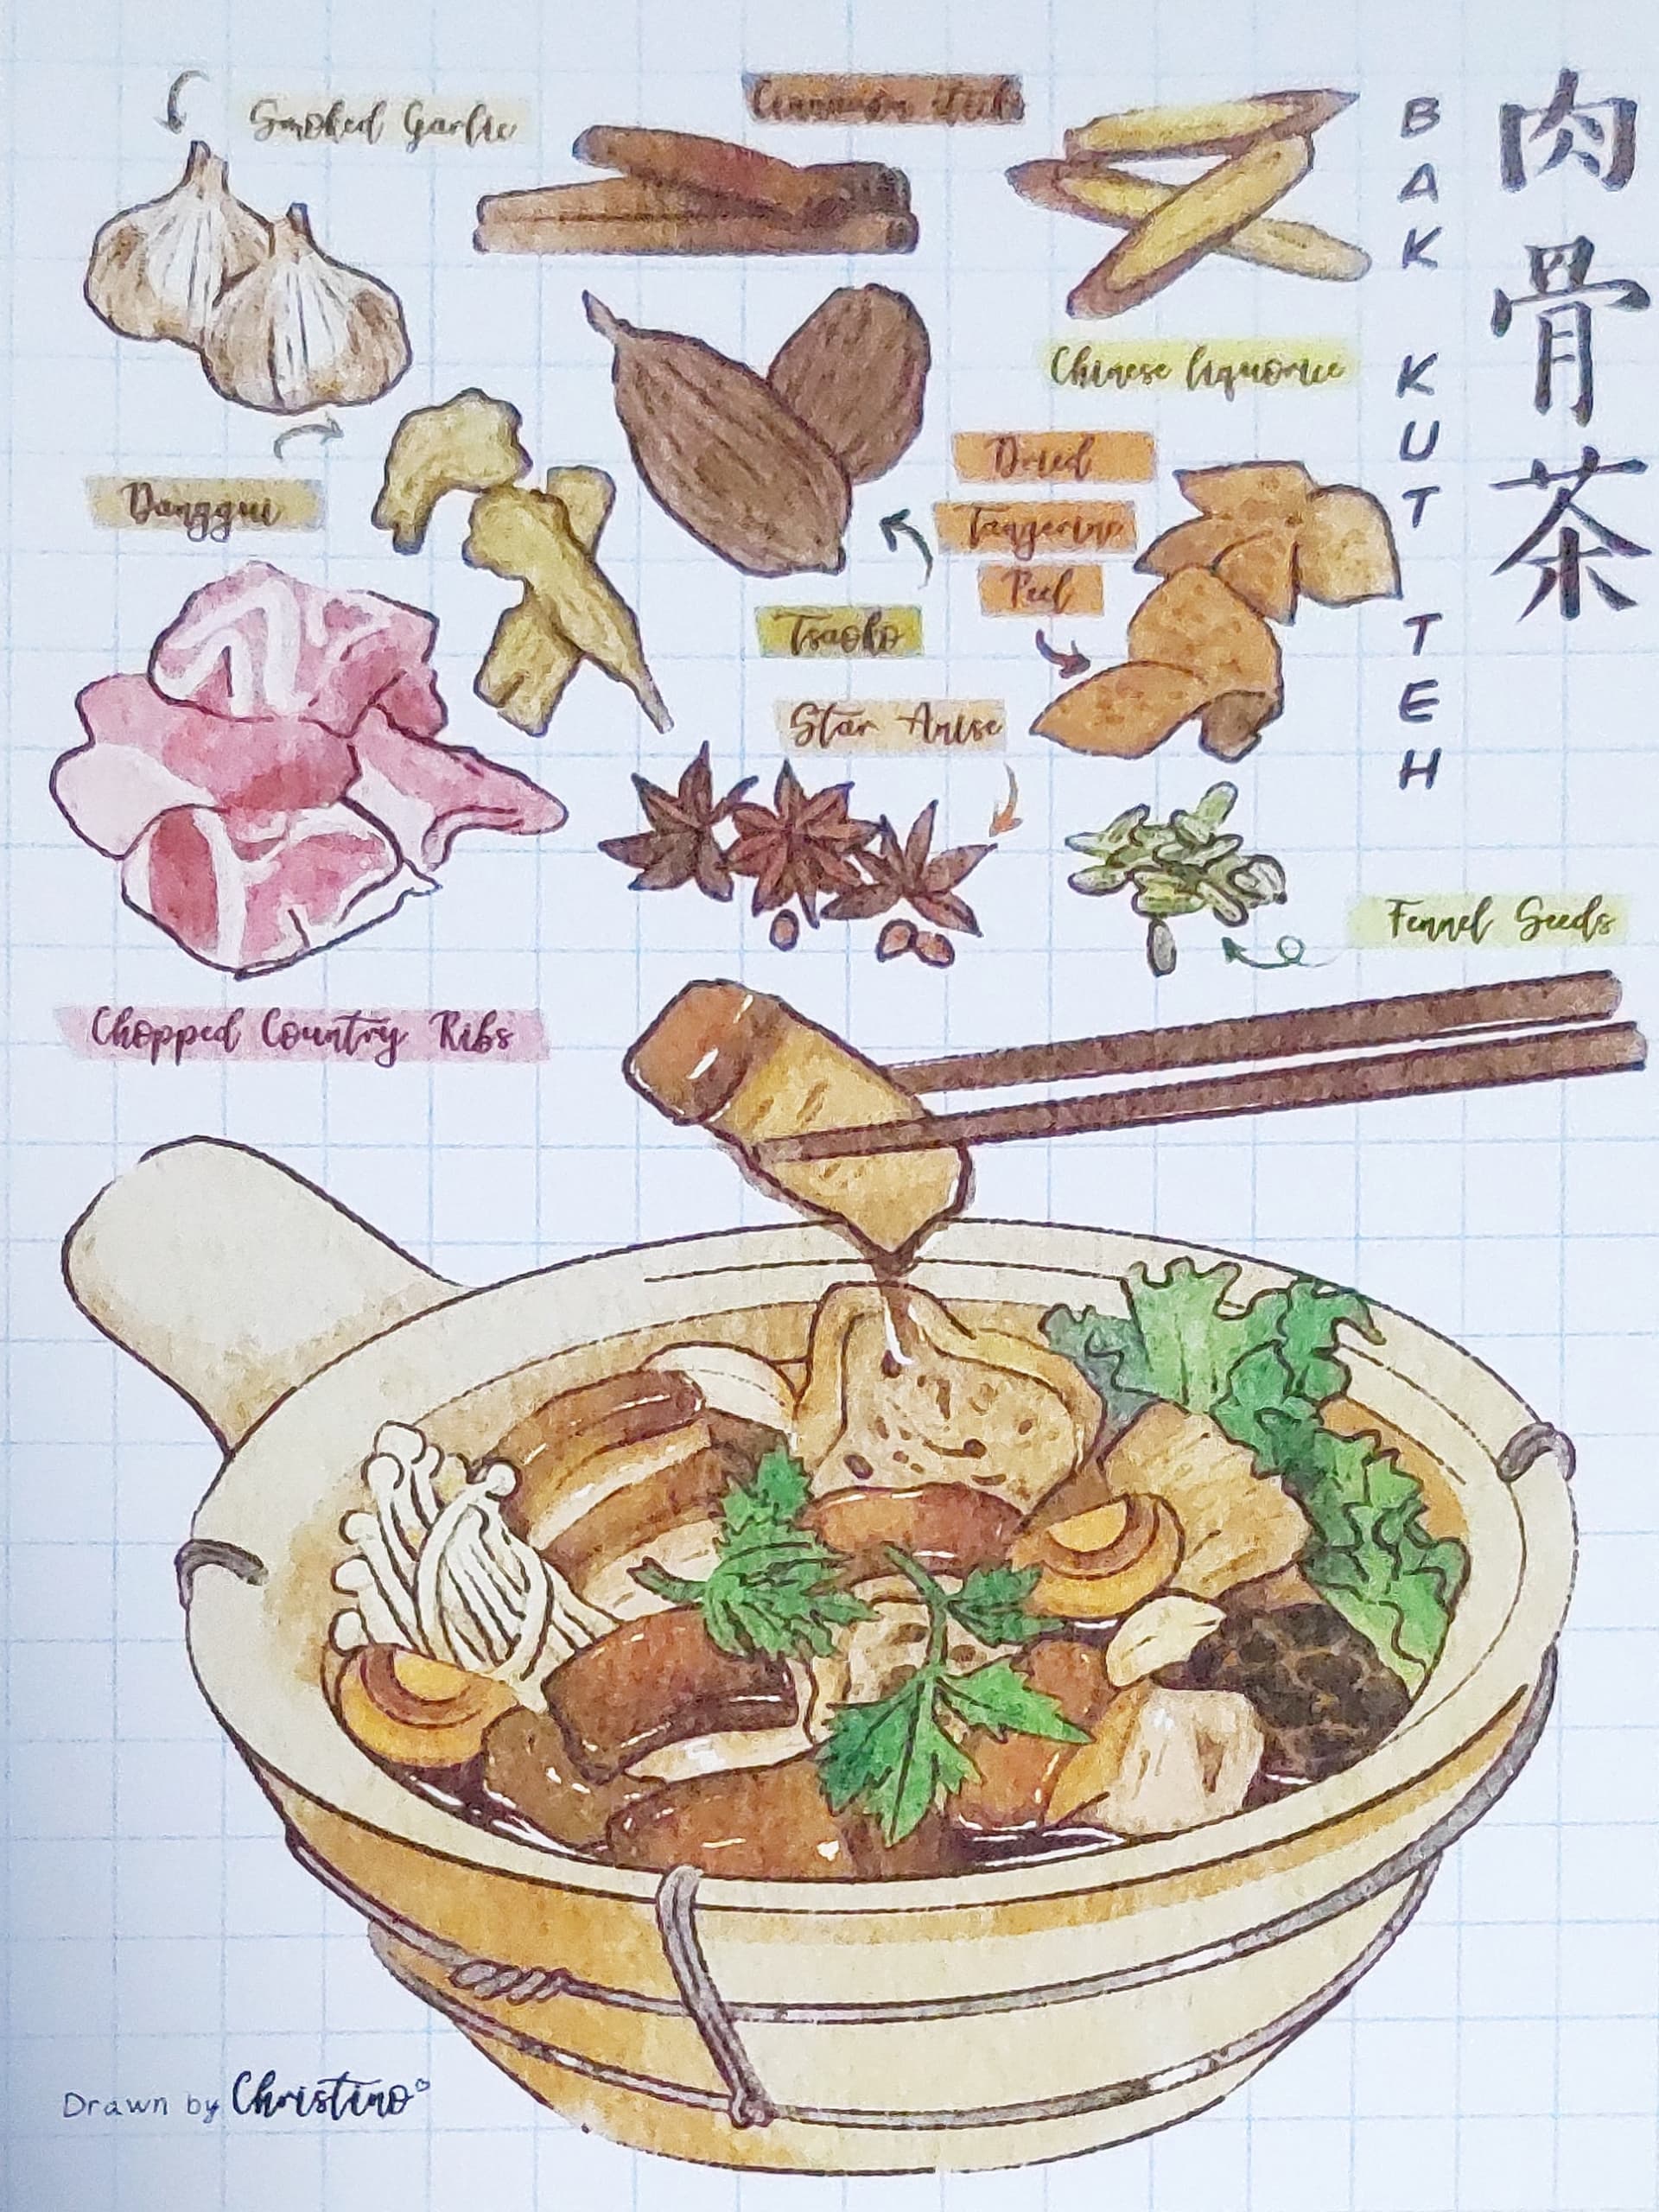 Smoked Garlic
Cinnamon sticks
Chinese liquorice
Danggui
Dried
Tangerine
Peel
Tsaoko
Star Anise
Fennel Seeds
Chopped Country Ribs
BAK KUT TEH
肉骨茶
Drawn by Christine